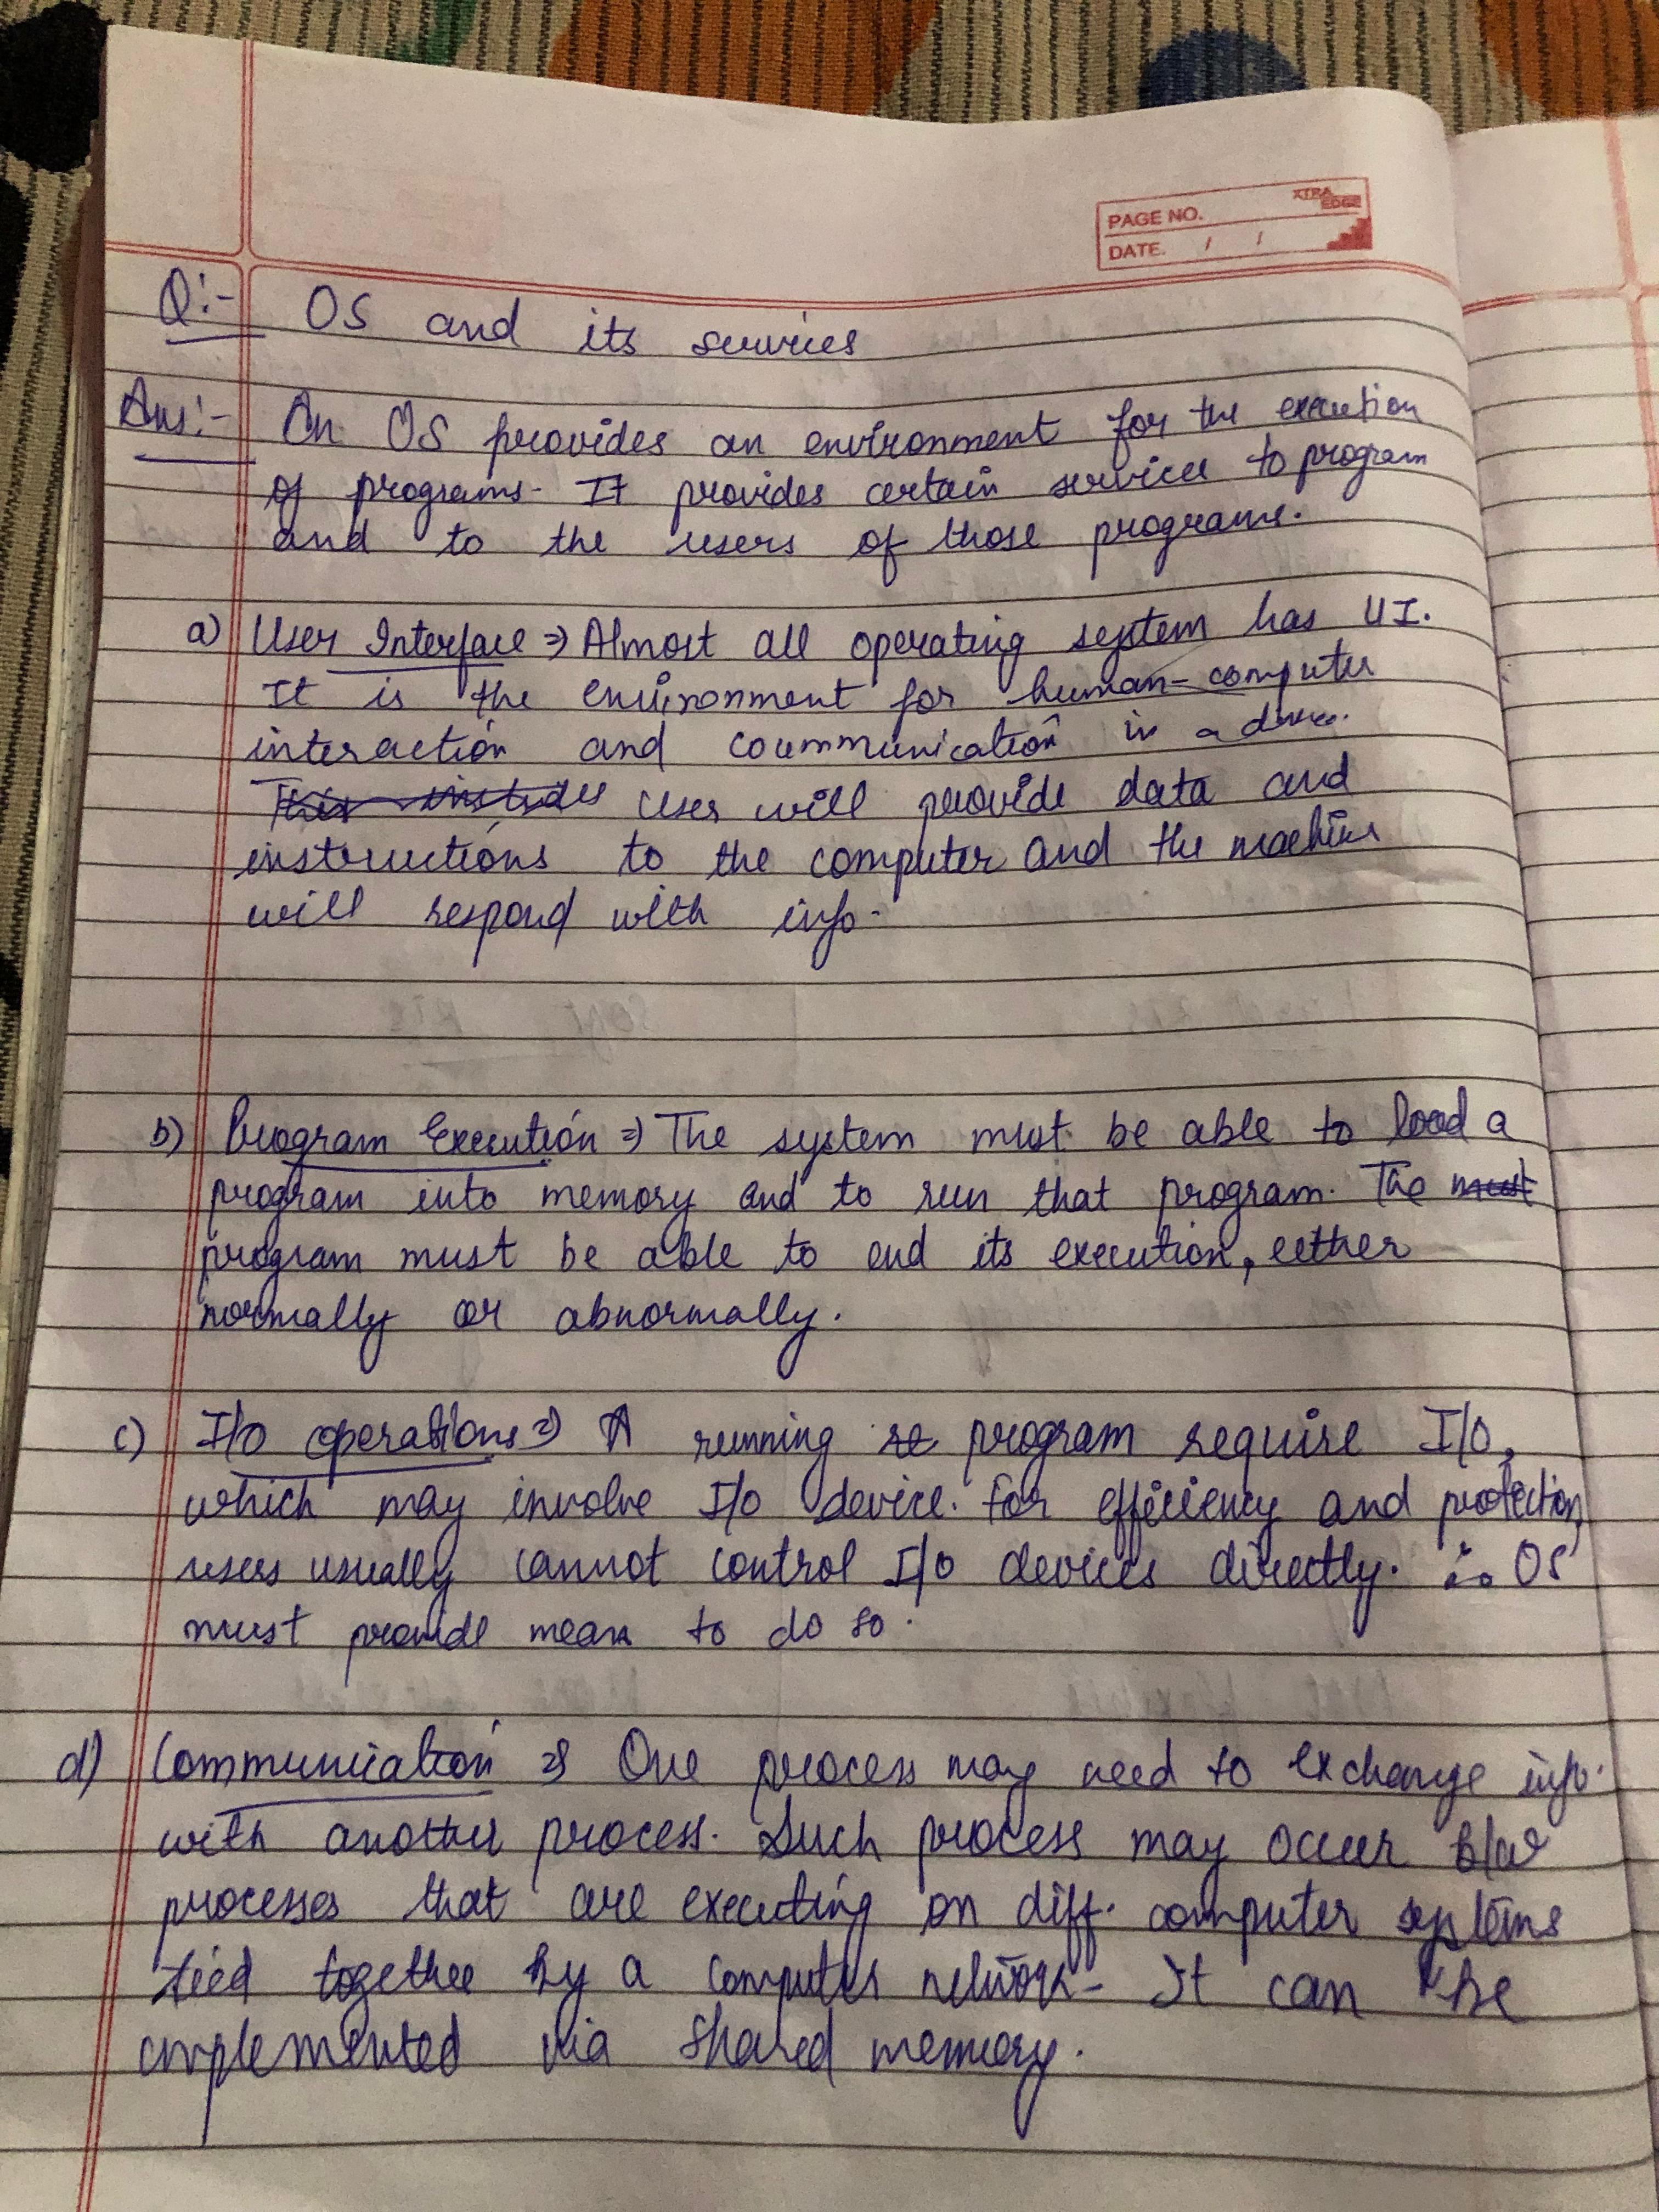 XTRA EDGE
PAGE NO.
DATE. / /
Q:- OS and its services
Ans:- An OS provides an environment for the execution
of programs. It provides certain services to program
and to the users of those programs.
a) User Interface ⇒ Almost all operating system has UI.
It is the environment for human-computer
interaction and coummunication in a device.
This includes User will provide data and
instructions to the computer and the machine
will respond with info.
b) Program Execution ⇒ The system must be able to load a
program into memory and to run that program. The must
program must be able to end its execution, either
normally or abnormally.
c) I/O operations ⇒ A running re program require I/O,
which may involve I/O device. for efficiency and protection,
users usually cannot control I/O devices directly. ∴ OS
must provide mean to do so.
d) Communication ⇒ One process may need to exchange info.
with another process. Such process may occur b/w
processes that are executing on diff. computer systems
tied together by a computer network. It can be
implemented via shared memory.